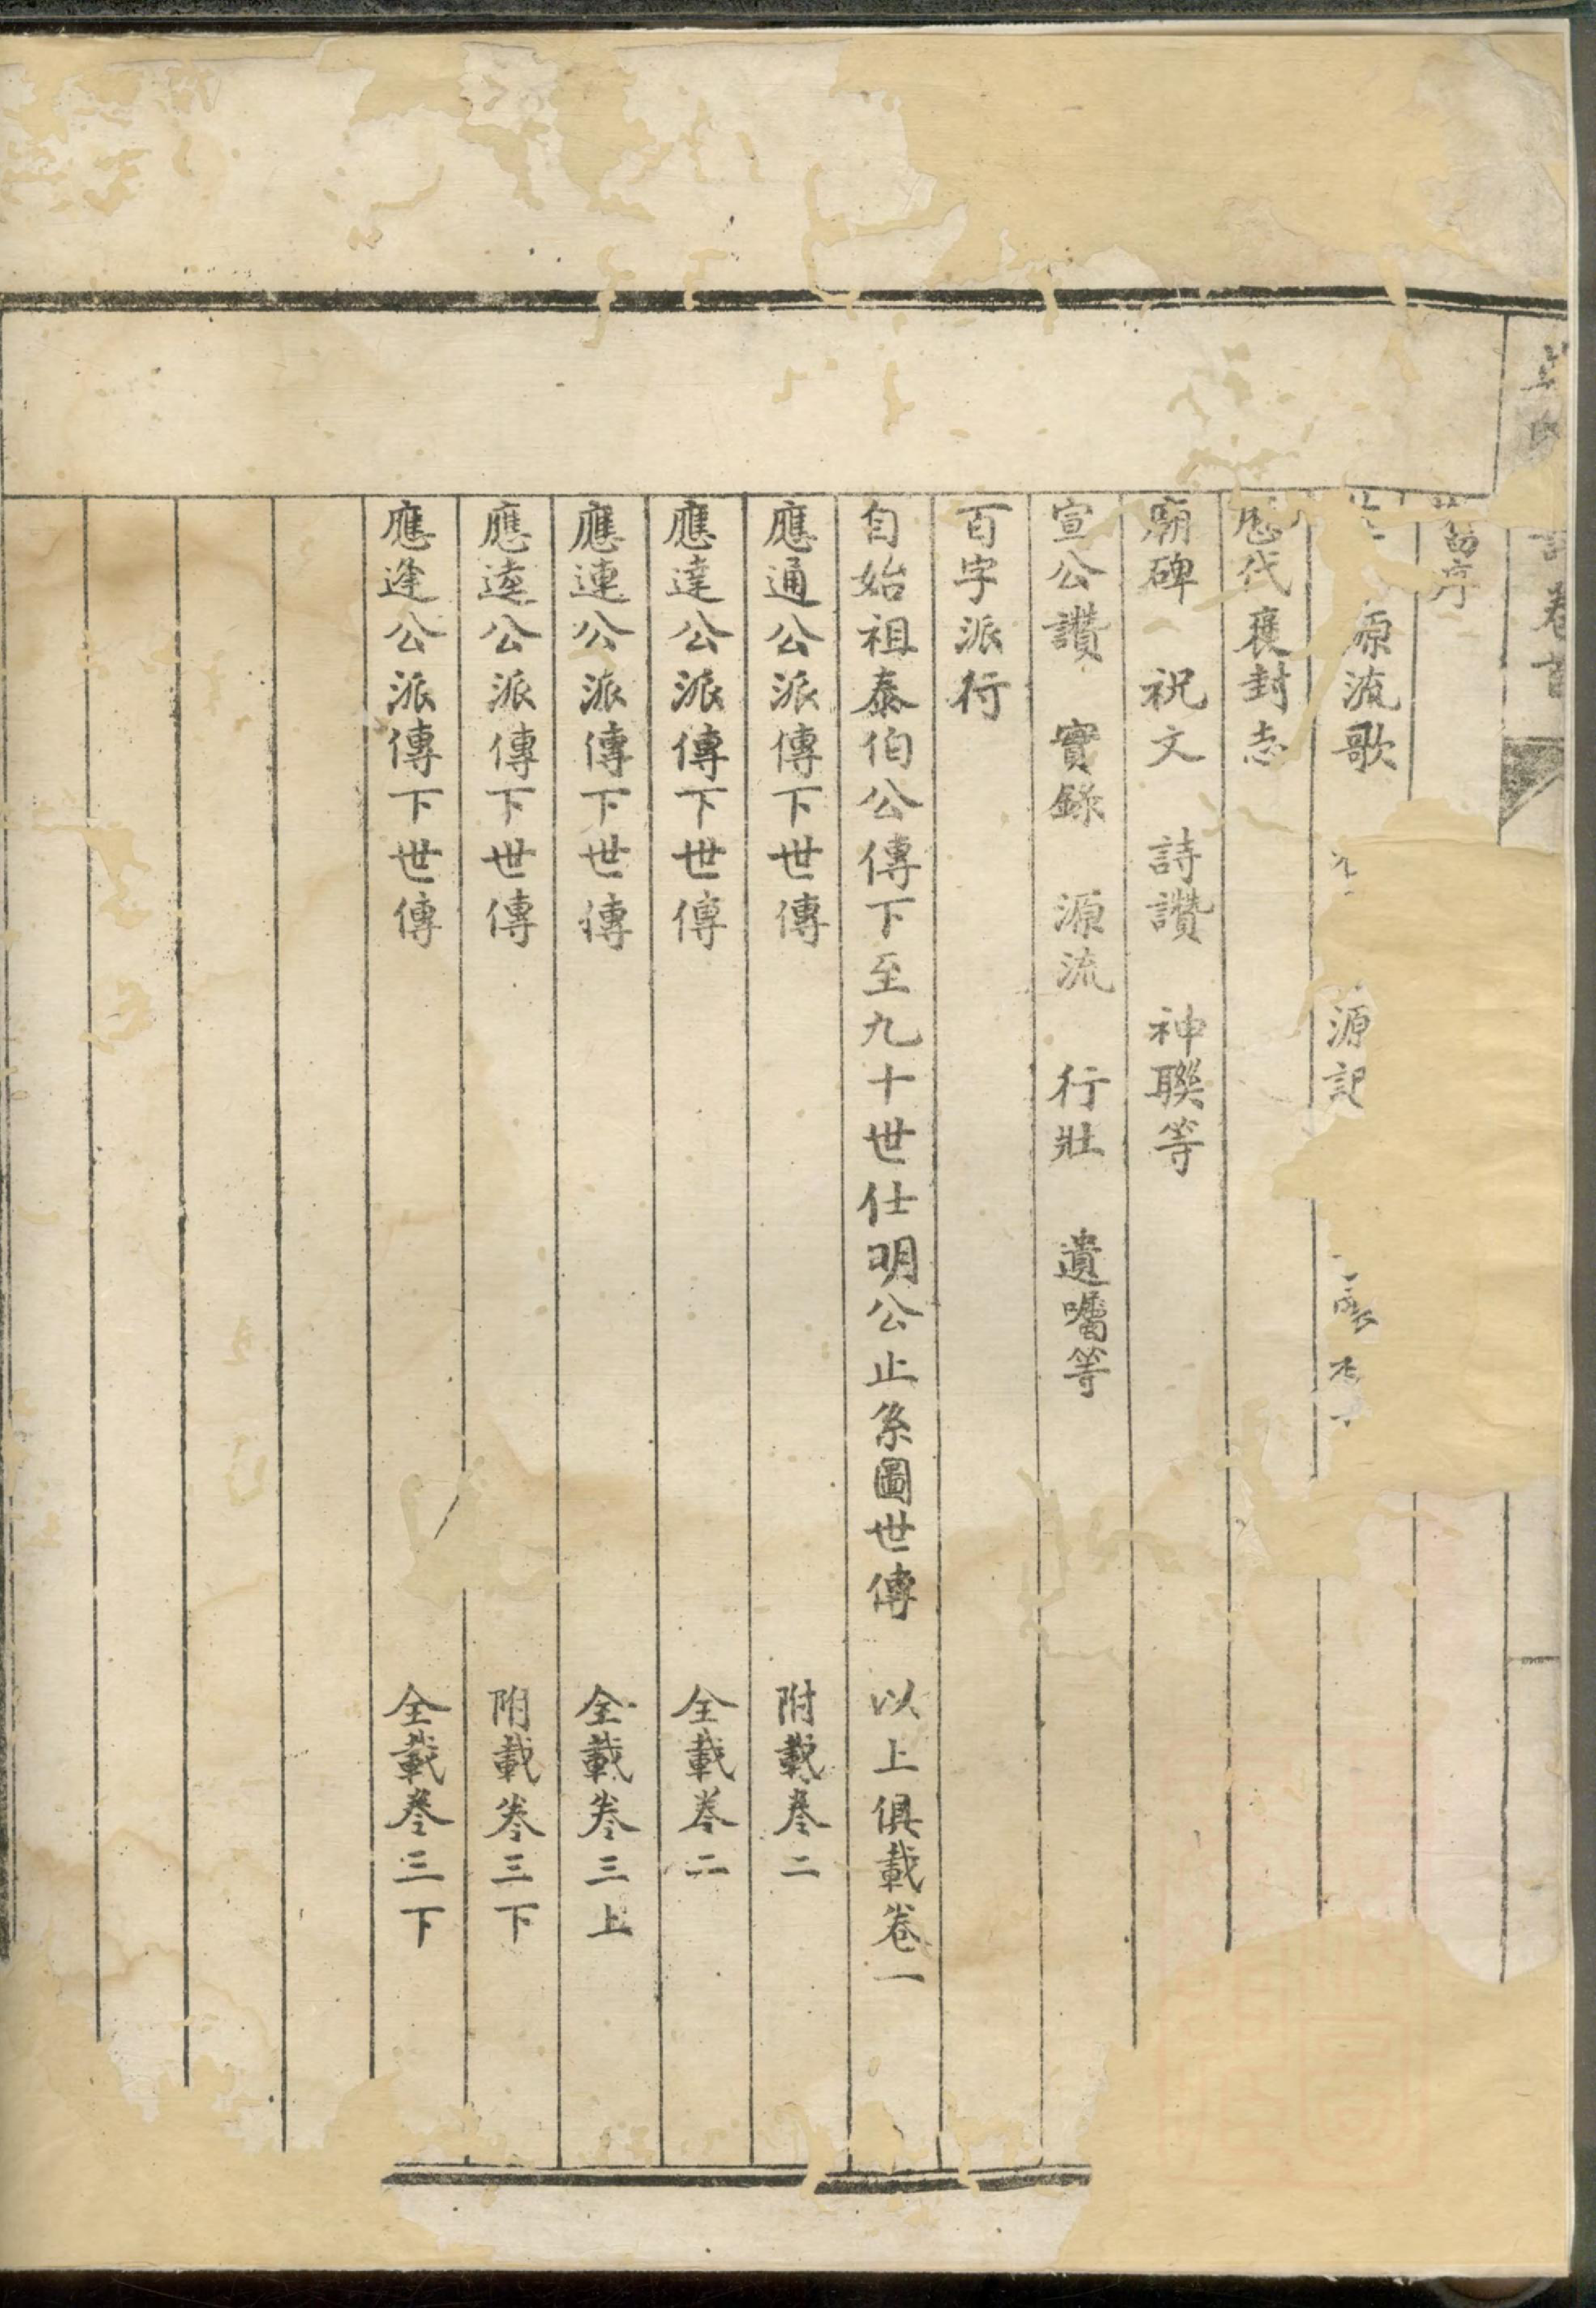 卷首
舊序
源流歌 源記
歷代襃封志
廟碑 祝文 詩讚 神聯等
宣公讚 實錄 源流 行壯 遺囑等
百字派行
自始祖泰伯公傳下至九十世仕明公止系圖世傳 以上俱載卷一
應通公派傳下世傳 附載卷二
應達公派傳下世傳 仝載卷二
應連公派傳下世傳 仝載卷三上
應逵公派傳下世傳 附載卷三下
應逢公派傳下世傳 仝載卷三下